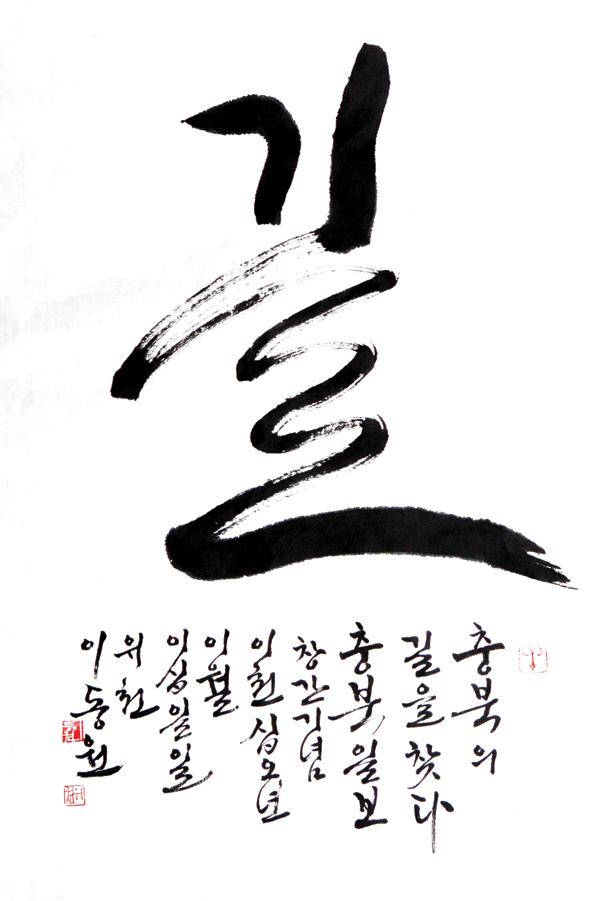 길
충북의
길을 찾다
충북일보
창간기념
이천십오년
이월
이십일일
위천
이동원